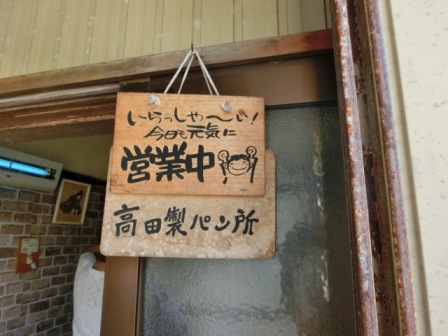 いらっしゃ～い!
今日も元気に
営業中
高田製パン所